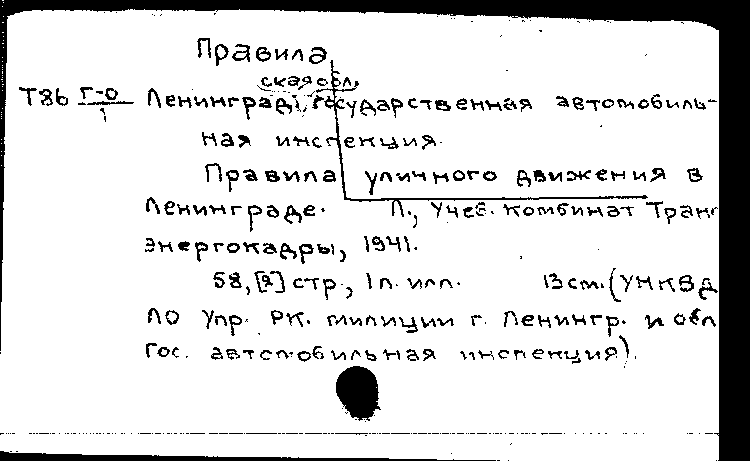 Правила
ская обл.
Т86 Г-0 Ленинград, государственная автомобиль-
1
ная инспекция.
Правила уличного движения в
Ленинграде. Л., Учеб. комбинат Транс
энергокадры, 1941.
58, [2] стр., 1 л. илл. 13 см. (УНКВД
ЛО Упр. РК. милиции г. Ленингр. и обл
Гос. автомобильная инспекция).